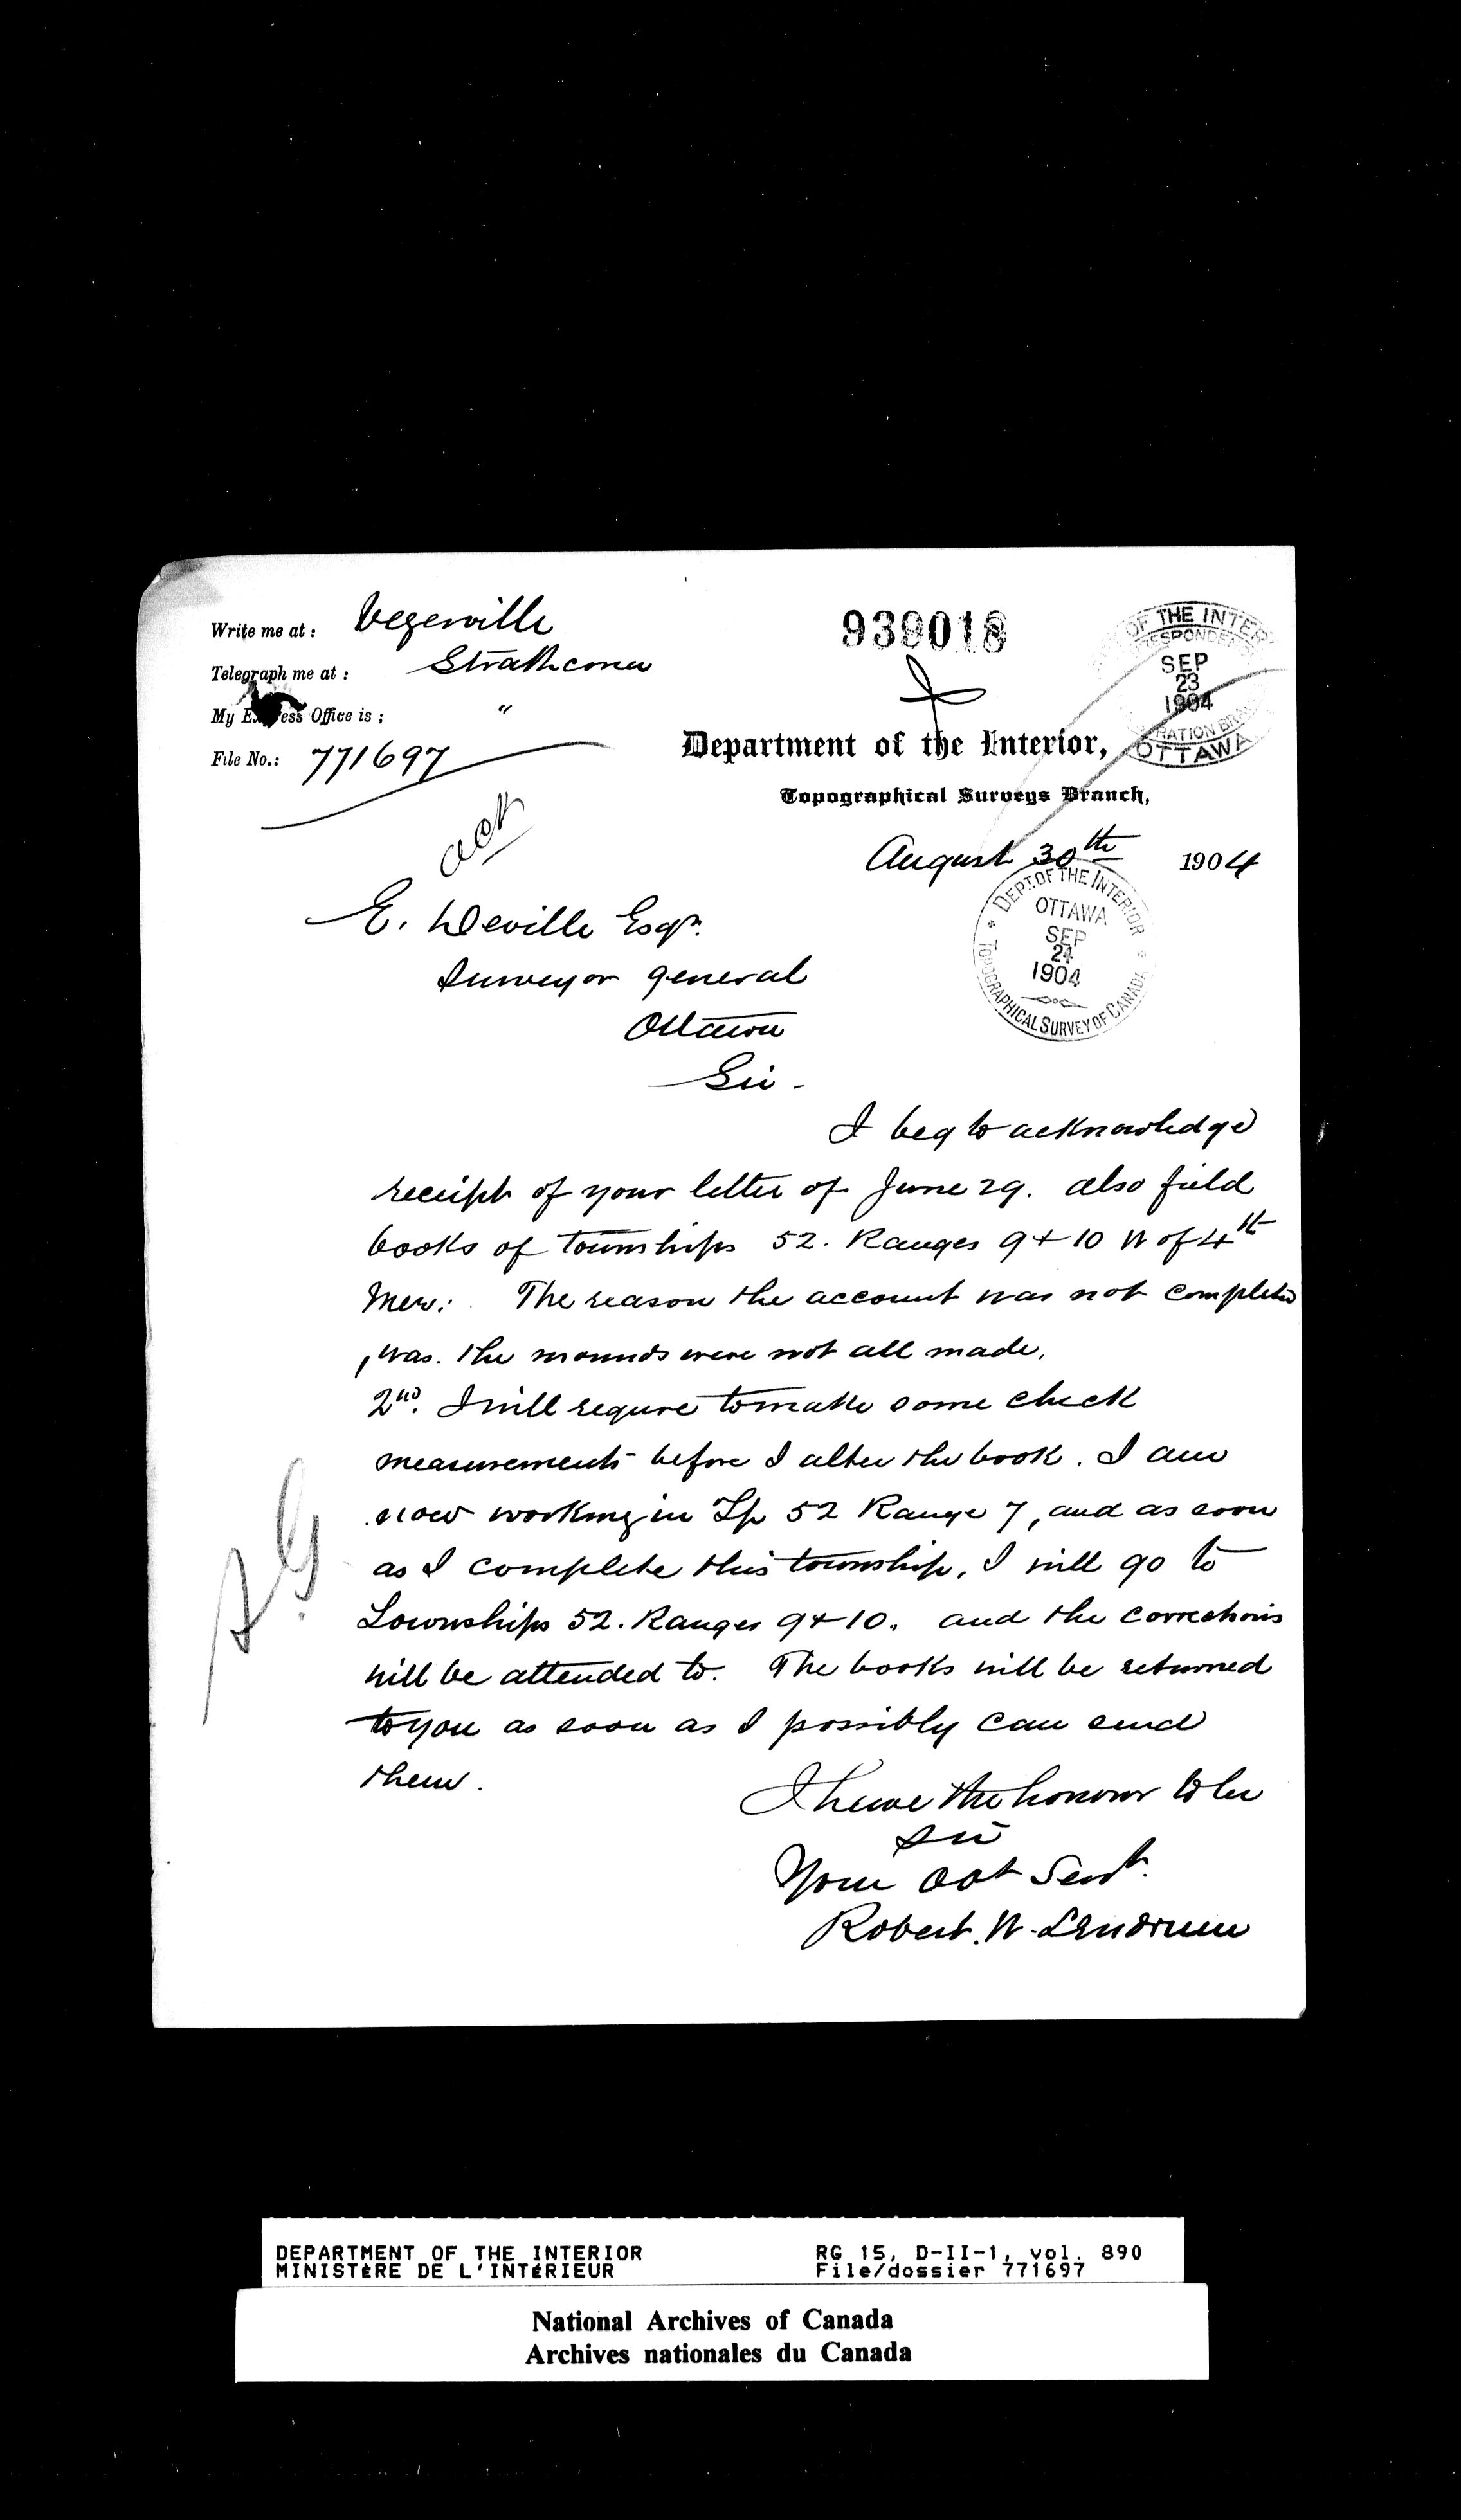 Write me at : Vegerville
Telegraph me at : Strathcona
My Express Office is ; "
File No.: 771697
939018
OF THE INTER
SEP
23
1904
RATION BRA
OTTAWA
Department of the Interior,
Topographical Surveys Branch,
August 30th 1904
ack
DEPT. OF THE INTERIOR
OTTAWA
SEP
24
1904
TOPOGRAPHICAL SURVEY OF CANADA
E. Deville Esqr.
Surveyor General
Ottawa
Sir -
I beg to acknowledge
receipt of your letter of June 29. also field
books of townships 52. Ranges 9 + 10 W of 4th
Mer: The reason the account was not completed
, was. the mounds were not all made.
2nd. I will requre to make some check
measurements before I alter the book. I am
now working in Tp 52 Range 7, and as soon
as I complete this township, I will go to
Townships 52. Ranges 9 + 10. and the corrections
will be attended to. The books will be returned
to you as soon as I possibly can send
them.
S.G
I have the honour to be
Sir
Your obt Servt.
Robert. W. Lendrum
DEPARTMENT OF THE INTERIOR
MINISTÈRE DE L'INTÉRIEUR
RG 15, D-II-1, vol. 890
File/dossier 771697
National Archives of Canada
Archives nationales du Canada